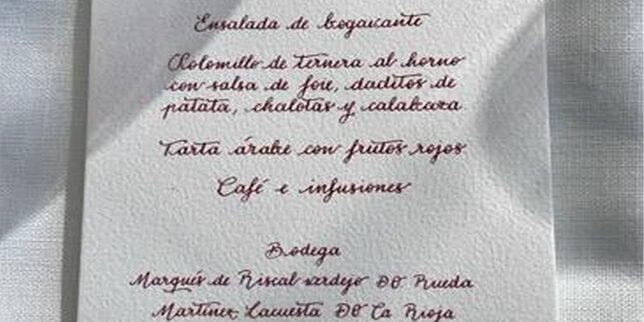 Ensalada de bogavante
Solomillo de ternera al horno
con salsa de foie, daditos de
patata, chalotas y calabaza
Tarta árabe con frutos rojos
Café e infusiones
Bodega
Marqués de Riscal verdejo DO Rueda
Martínez Lacuesta DO La Rioja